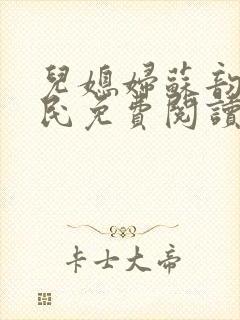 兒媳婦蘇韵
民免費閱讀
卡士大帝